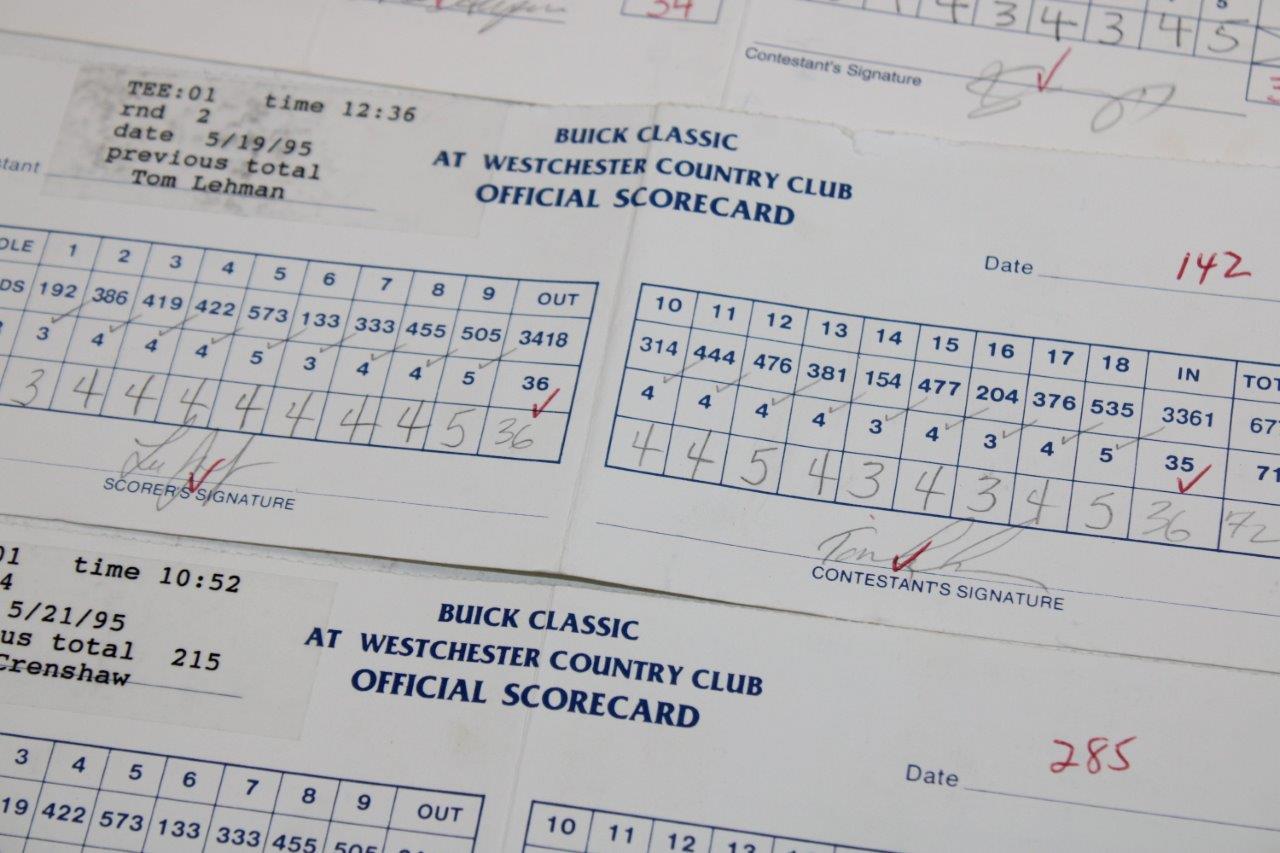 34
4 3 4 3 4 5
Contestant's Signature
TEE:01 time 12:36
rnd 2
date 5/19/95
previous total
Tom Lehman
BUICK CLASSIC
AT WESTCHESTER COUNTRY CLUB
OFFICIAL SCORECARD
Date 142
1 2 3 4 5 6 7 8 9 OUT
192 386 419 422 573 133 333 455 505 3418
3 4 4 4 5 3 4 4 5 36
3 4 4 4 4 4 4 4 5 36
SCORER'S SIGNATURE
10 11 12 13 14 15 16 17 18 IN
314 444 476 381 154 477 204 376 535 3361
4 4 4 4 3 4 3 4 5 35 71
4 4 5 4 3 4 3 4 5 36 72
CONTESTANT'S SIGNATURE
time 10:52
4
5/21/95
total 215
Crenshaw
BUICK CLASSIC
AT WESTCHESTER COUNTRY CLUB
OFFICIAL SCORECARD
Date 285
3 4 5 6 7 8 9 OUT
19 422 573 133 333 455 505
10 11 12 13